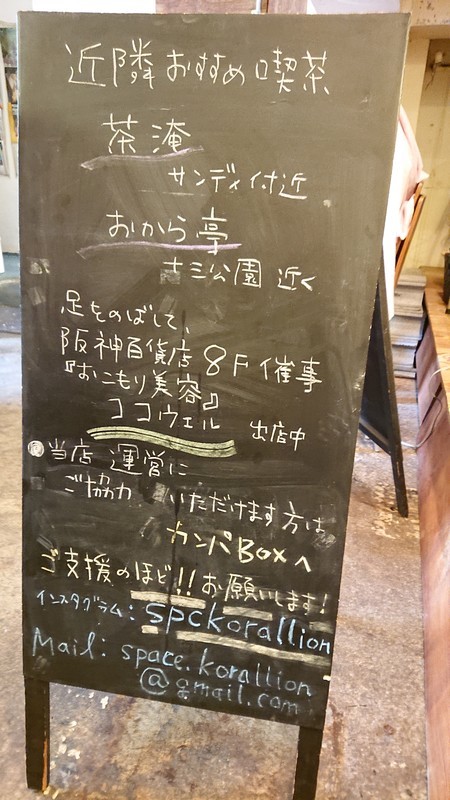 近隣おすすめ喫茶
茶淹
サンディ付近
おから亭
十三公園 近く
足をのばして、
阪神百貨店 8F 催事
『おこもり美容』
ココウェル 出店中
当店 運営に
ご協力 いただけます方は
カンパBoxへ
ご支援のほど!!お願いします!
インスタグラム:spckorallion
Mail: space.korallion
@gmail.com